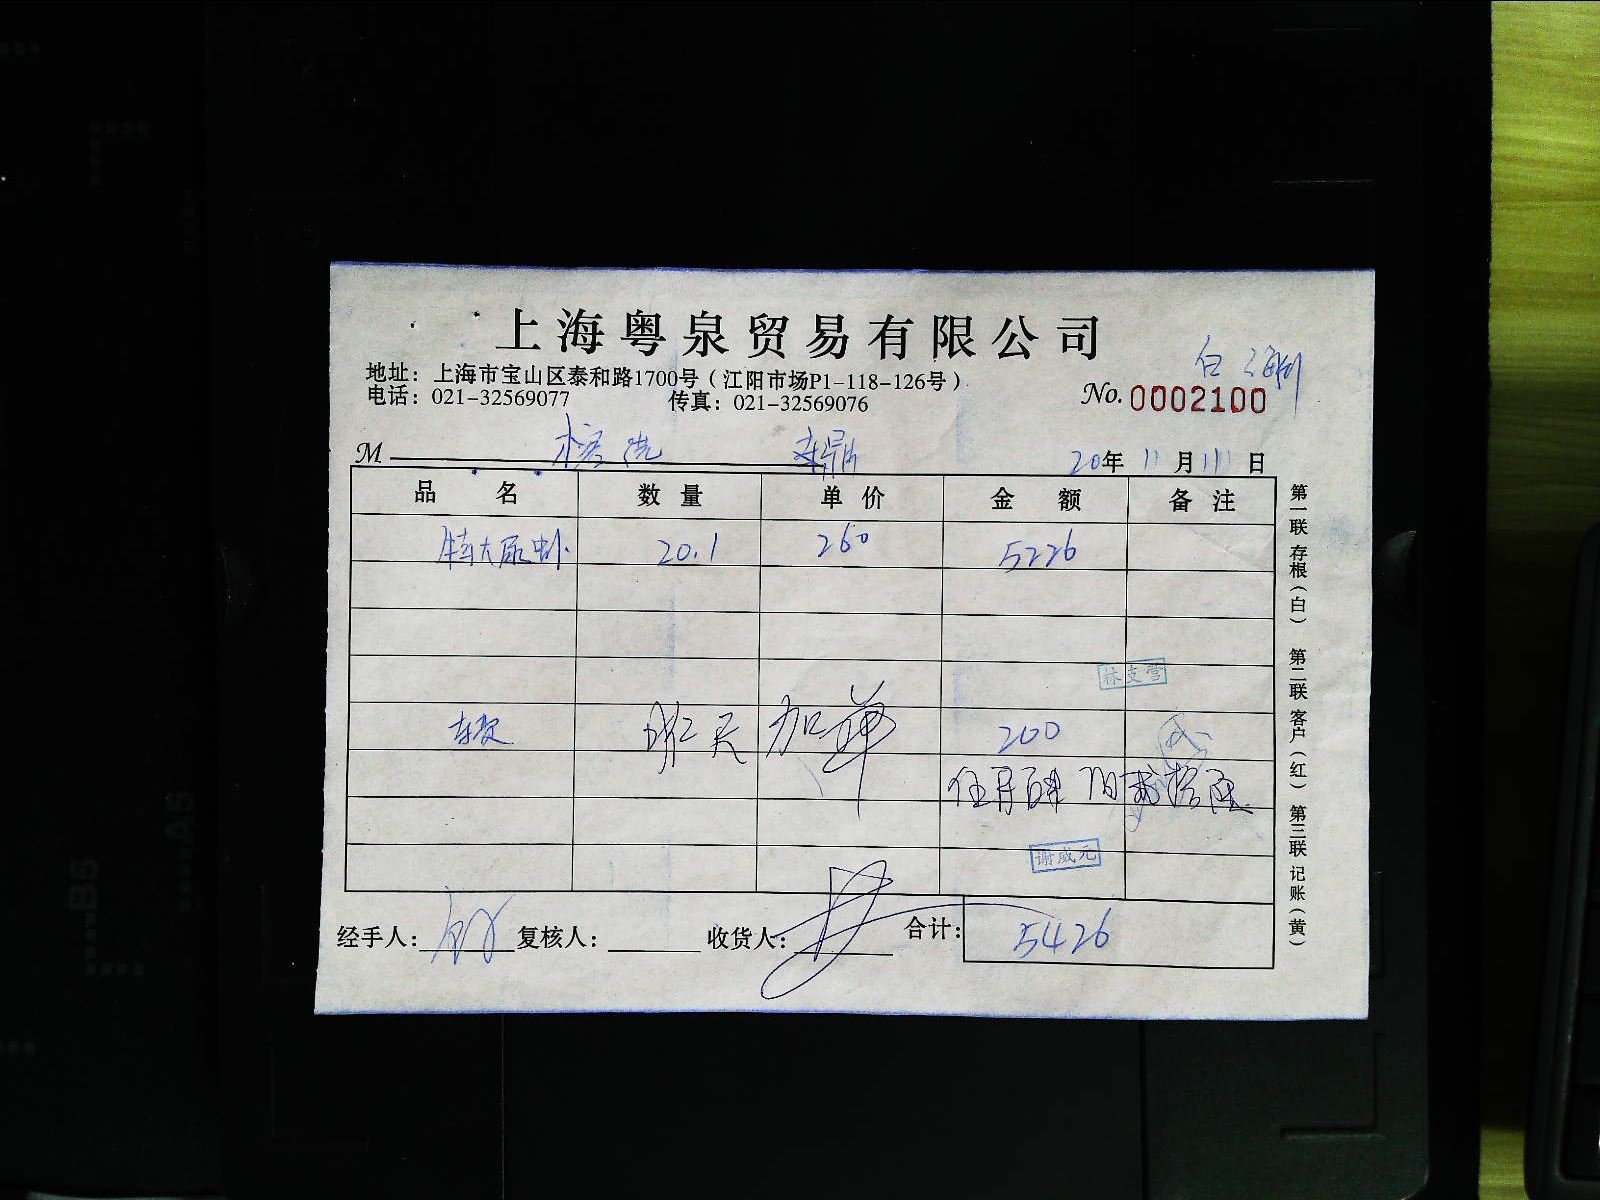 上海粤泉贸易有限公司
地址：上海市宝山区泰和路1700号（江阳市场P1-118-126号）
电话：021-32569077 传真：021-32569076
No. 0002100
M
20年 11月 11日
品名 数量 单价 金额 备注
特大尿虾 20.1 260 5226
林支营
车费 加单 200
伍仟肆佰贰拾陆
谢成元
经手人： 复核人： 收货人： 合计： 5426
第一联存根（白） 第二联客户（红） 第三联记账（黄）